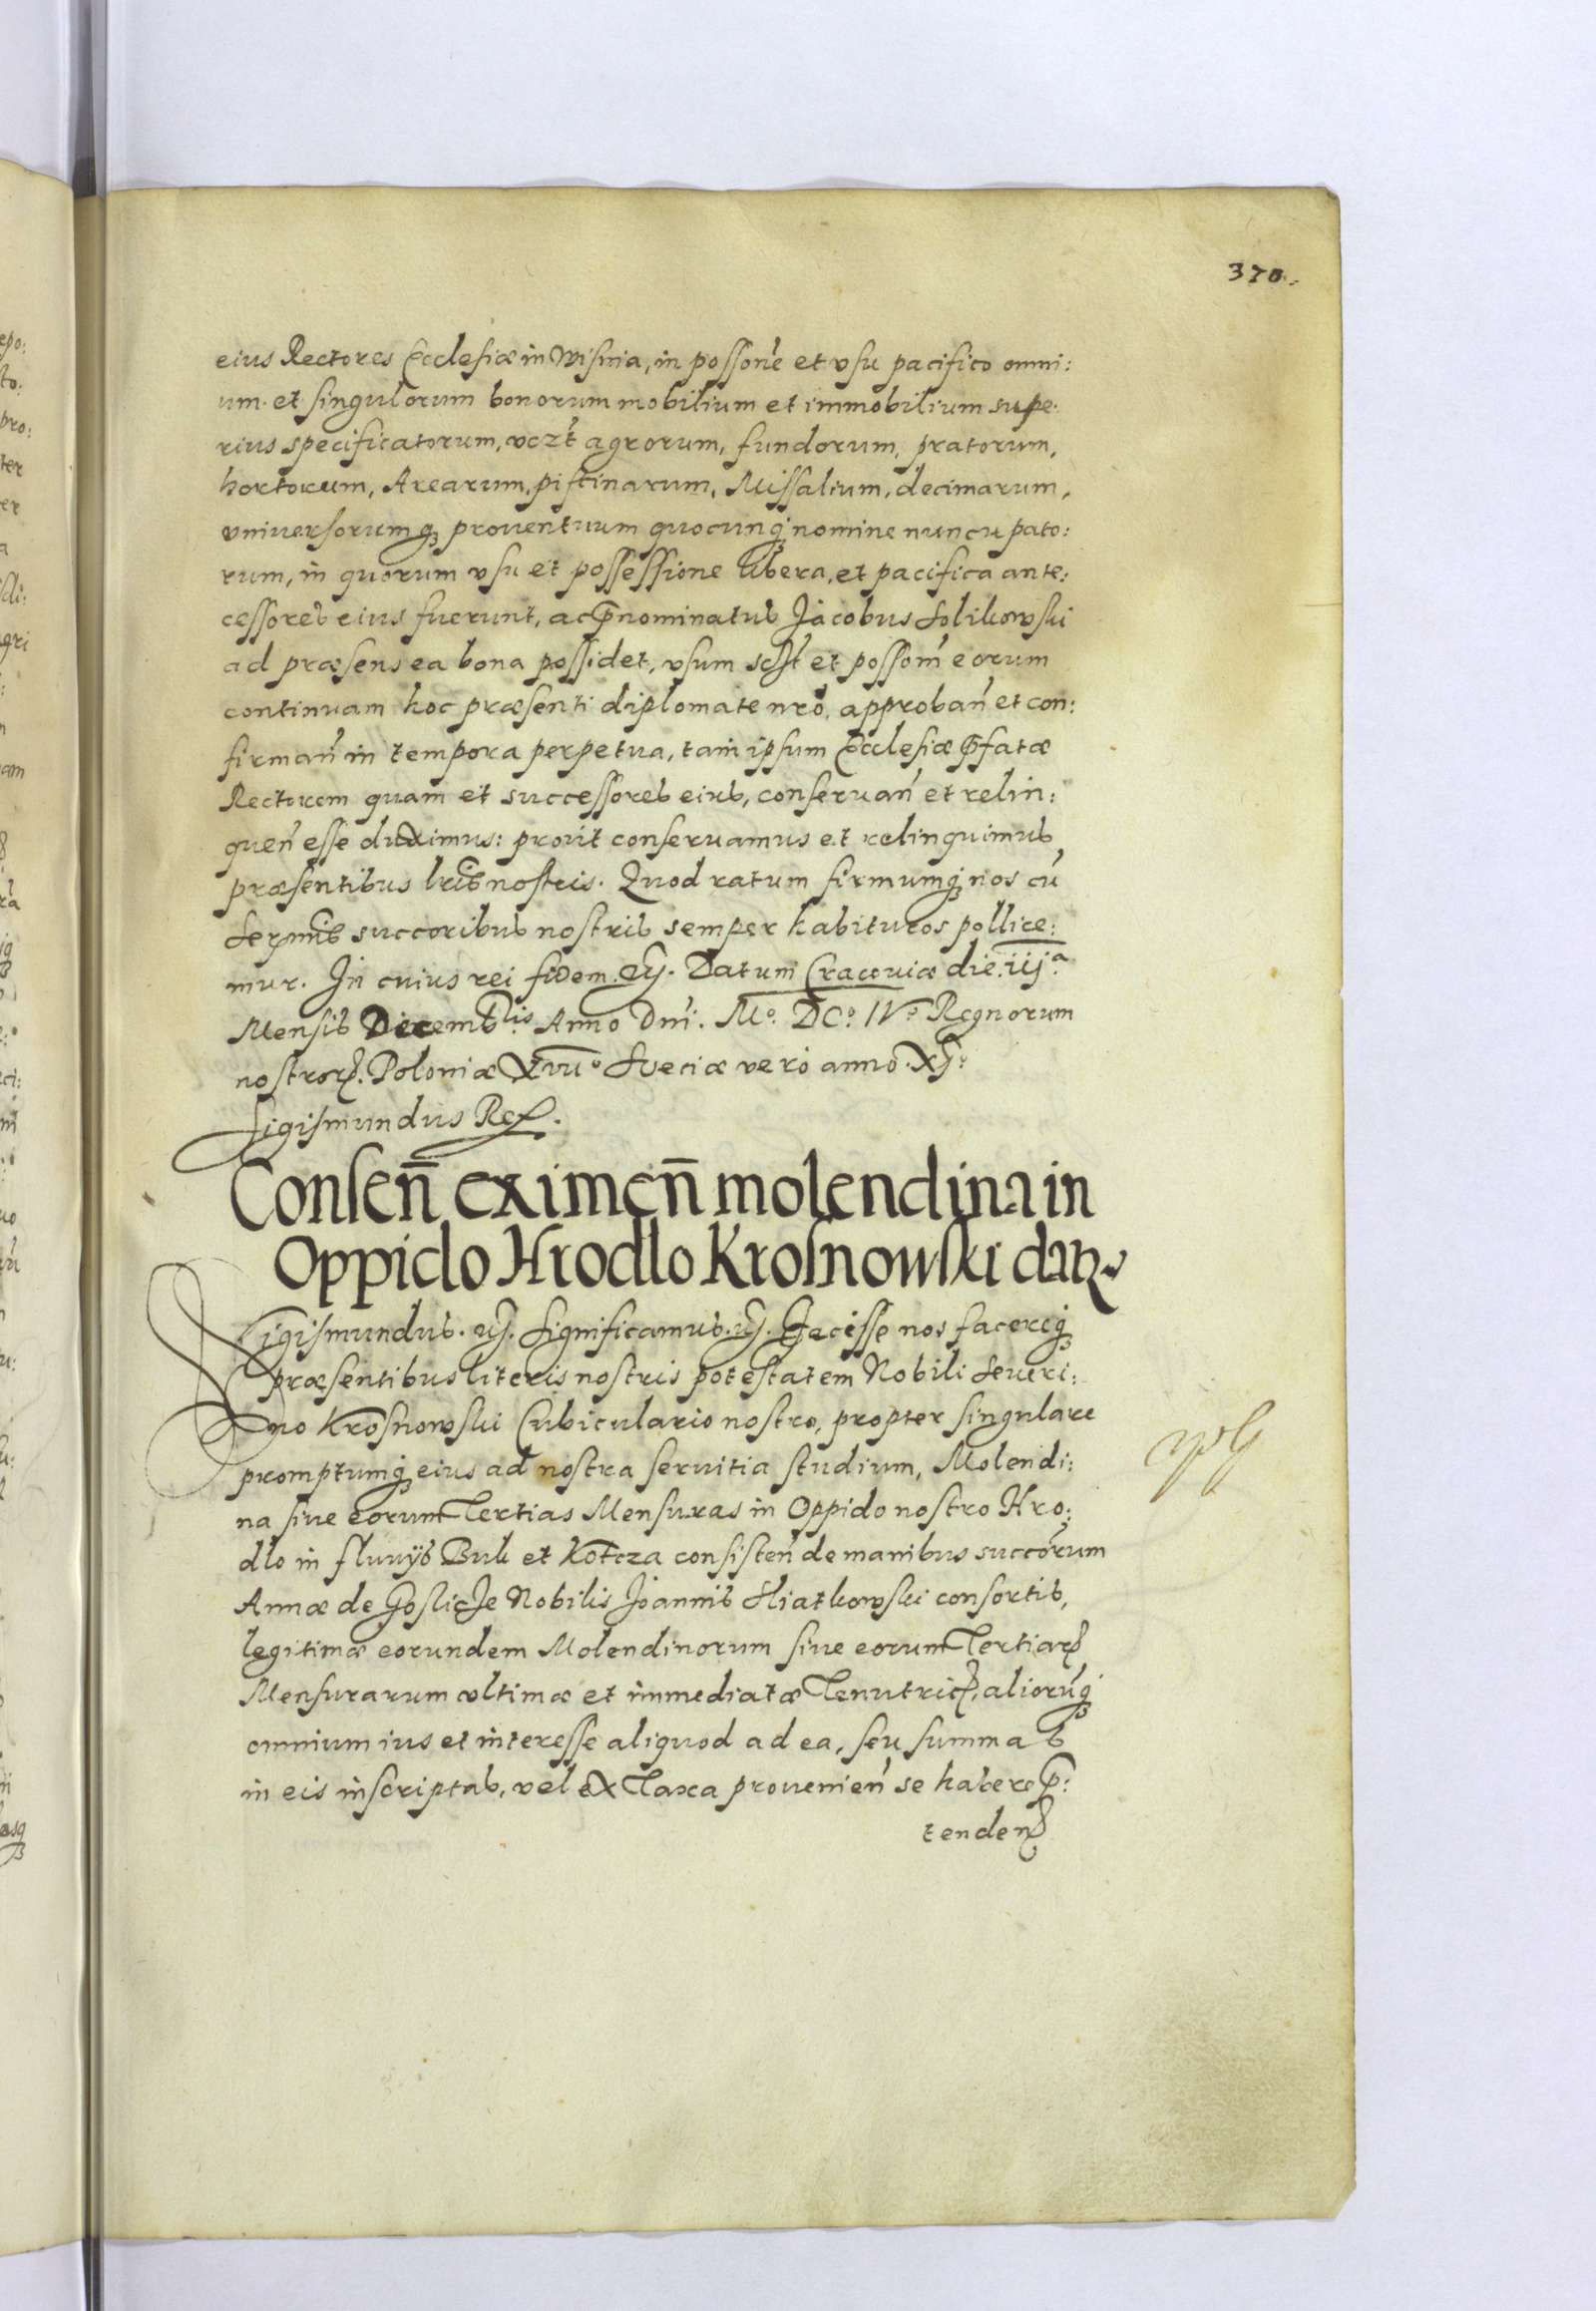 370.
eius Rectores Ecclesiæ in Wisnia, in possone et vsu pacifico omni:
um et singulorum bonorum mobilium et immobilium supe:
rius specificatorum, vczt agrorum, fundorum, pratorum,
hortorum, Arearum, piscinarum, Missalium, decimarum,
vniuersorumq3 prouentuum quocunq3 nomine nuncupato:
rum, in quorum vsu et possessione libera, et pacifica ante:
cessores eius fuerunt, ac pnominatus Jacobus Solikowski
ad præsens ea bona possidet, vsum et possom eorum
continuam hoc præsenti diplomate nro, approban et con:
firman in tempora perpetua, tam ipsum Ecclesiæ pfatæ
Rectorem quam et successores eius, conseruan et relin:
quen esse duximus: prout conseruamus et relinquimus
præsentibus lris nostris. Quod ratum firmumq3 nos cu
Sermis succoribus nostris semper habituros pollice:
mur. In cuius rei fidem. Datum Cracouiæ die. iij a
Mensis Decembris Anno Dni. Mo. DCo. IVo. Regnorum
nostror. Poloniæ XVIIo Sueciæ vero anno. XI.
Sigismundus Rex.
Consen eximen molendina in
Oppido Hrodlo Krosnowski datr
Sigismundus. Significamus. Fecisse nos facereq3
præsentibus literis nostris potestatem Nobili Seueri:
no Krosnowski Cubiculario nostro, propter singulare
promptumq3 eius ad nostra seruitia studium, Molendi:
na siue eorum Tertias Mensuras in Oppido nostro Hro:
dlo in fluuijs Buk et Kotcza consisten de manibus succorum
Annæ de Nobilis Joannis Sliatkowski consortis,
legitimæ eorundem Molendinorum siue eorum Tertiar
Mensurarum vltimæ et immediatæ Tenutric, alioruq3
omnium ius et interesse aliquod ad ea, seu summas
in eis inscriptas, vel ex Taxa prouenien se habere p:
tenden